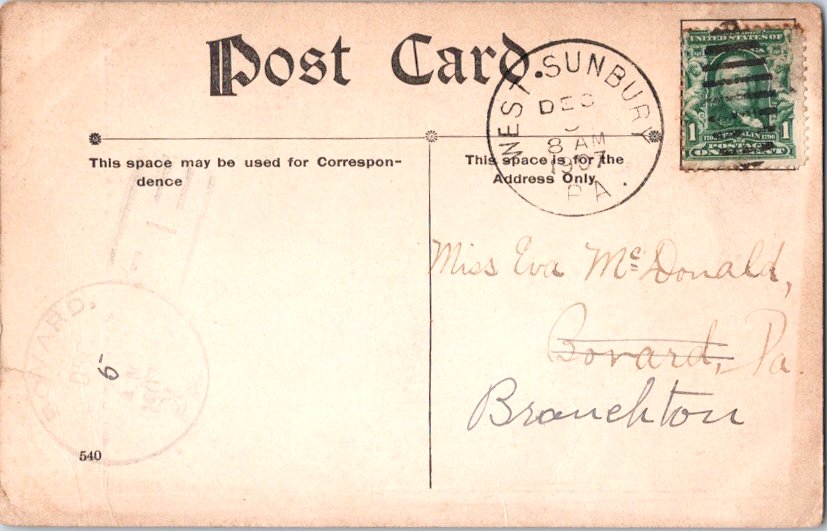 Post Card.
WEST SUNBURY
DEC
8 AM
1907
PA.
UNITED STATES OF
1 1
POSTAGE
ONE CENT
This space may be used for Correspon-
dence
This space is for the
Address Only.
Miss Eva McDonald,
Bovard, Pa.
Branchton
BOVARD,
6
540